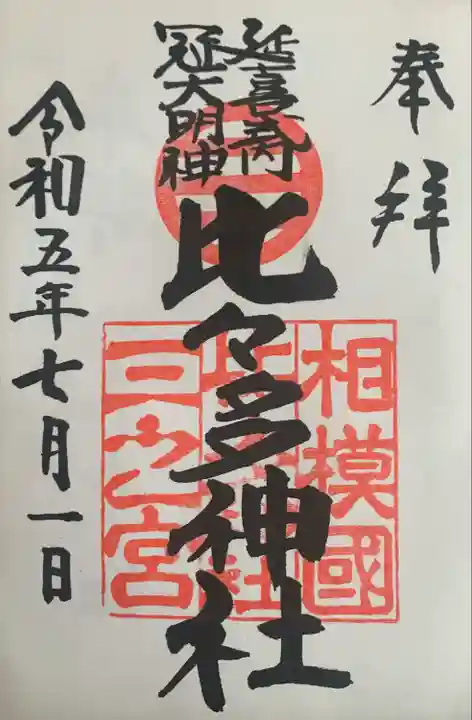 奉拝
延喜式内
冠大明神
比々多神社
相模國
三之宮
令和五年七月一日